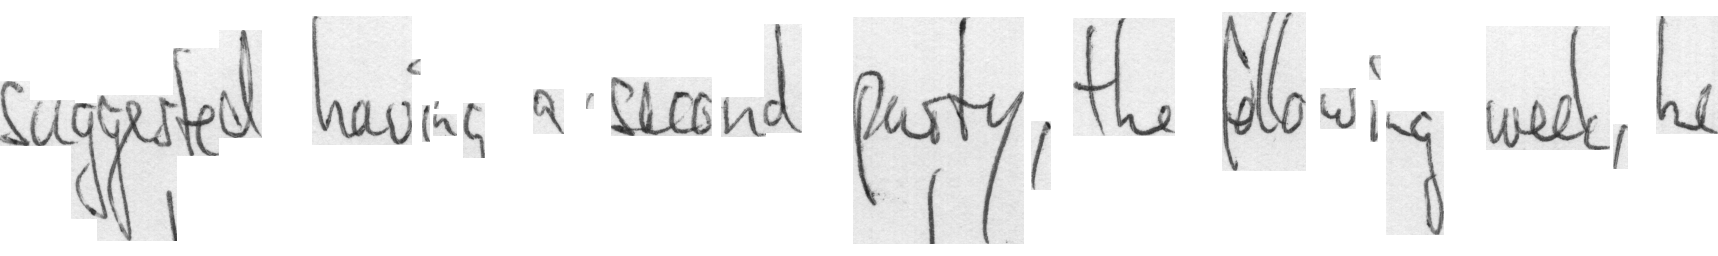 suggested having a second party, the following week, he